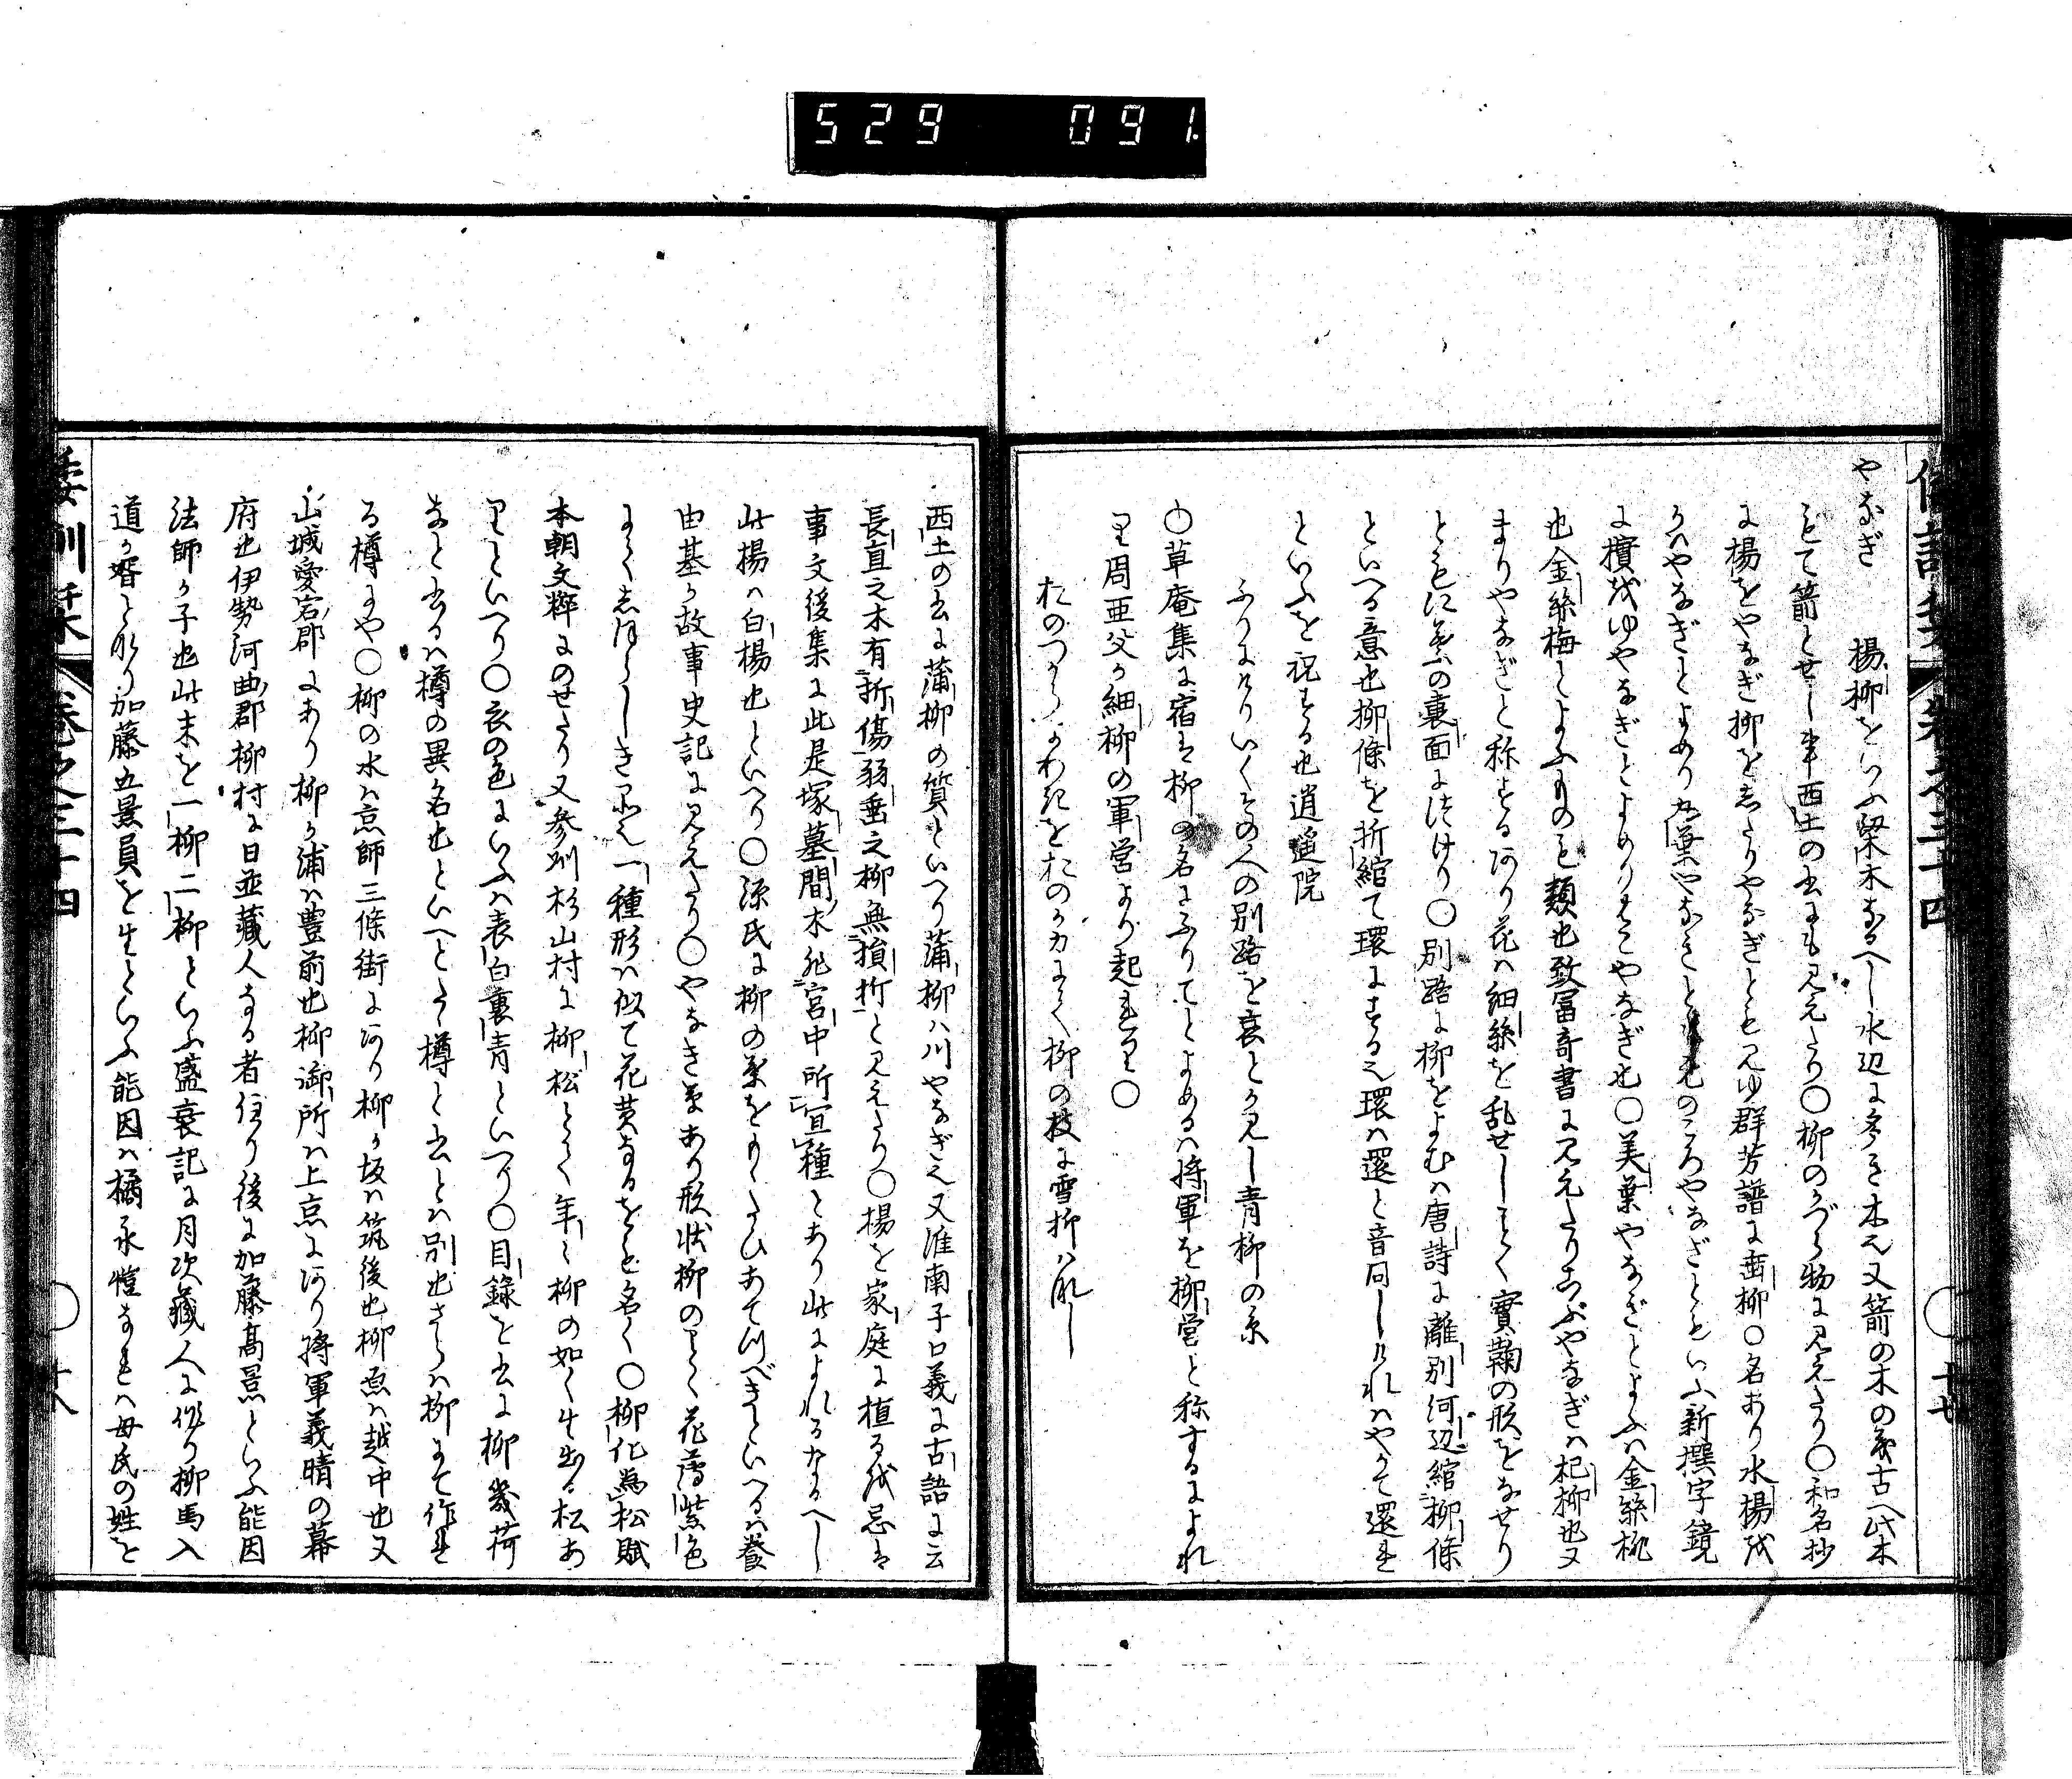 529 091
倭訓栞 巻之三十四 ○十七
やなぎ 楊柳をいふ梁木なるへし水辺に多き木也又箭の木の義古へ此木
をて箭とせし事西土の書にも見えたり○柳のかづら物に見えたり○和名抄
に楊をやなぎ柳をしたりやなぎとも見ゆ群芳譜に垂柳○名あり水楊を
かはやなぎとよめり丸葉やなきとも のころやなぎともいふ新撰字鏡
に檉をゆやなぎとよめり やなぎ也○美葉やなぎとよふは金絲桃
也金絲梅とよふものも類也致富奇書に見えたりこぶやなぎは杞柳也又
まりやなぎと称するあり花は細絲を乱せしことく實鞠の形をなせり
ともに葉の裏面に つけり○別路に柳をよむは唐詩に離別河辺綰柳條
といへる意也柳條を折綰て環にする也環は還と音同しけれはやかて還れ
といふを祝する也逍遥院
ふりにけりいくその人の別路を哀とか見し青柳の糸
○草庵集に宿は柳の名にふりてとよめるは将軍を柳営と称するによれ
り周亜父か細柳の軍営より起れり○
おのつからよわきをおのか力にて柳の枝に雪折はなし
西土の書に蒲柳の質といへり蒲柳は川やなぎ也又淮南子口義に古語に云
長直之木有折傷弱垂之柳無損折と見えたり○楊を家庭に植るを忌は
事文後集に此是塚墓間木非宮中所宜種とあり此によれるなるへし
此楊は白楊也といへり○源氏に柳の葉をもゝたひあてつべきといへるは養
由基か故事史記に見えたり○やなき草あり形状柳のことく花落紫色
にてしほらしき 也一種形は似て花黄なるをも名く○柳化為松賦
本朝文粋にのせたり又参州杉山村に柳松とて年々柳の如く生出る松あ
りといへり○衣の色にいふは表白裏青といへり○目録を書に柳幾荷
なと書るは樽の異名也といへとも樽と書とは別也さらは柳にて作れ
る樽にや○柳の水は京師三條街にあり柳か坂は筑後也柳 は越中也又
山城愛宕郡にあり柳か浦は豊前也柳御所は上京にあり将軍義晴の幕
府也伊勢河曲郡柳村に日並蔵人なる者住り後に加藤高景といふ能因
法師か子也此末を一柳二柳といふ盛衰記に月次蔵人に作り柳馬入
道か壻となり加藤五景員を生といふ能因は橘永愷なれは母氏の姓を
倭訓栞 巻之三十四 ○十八